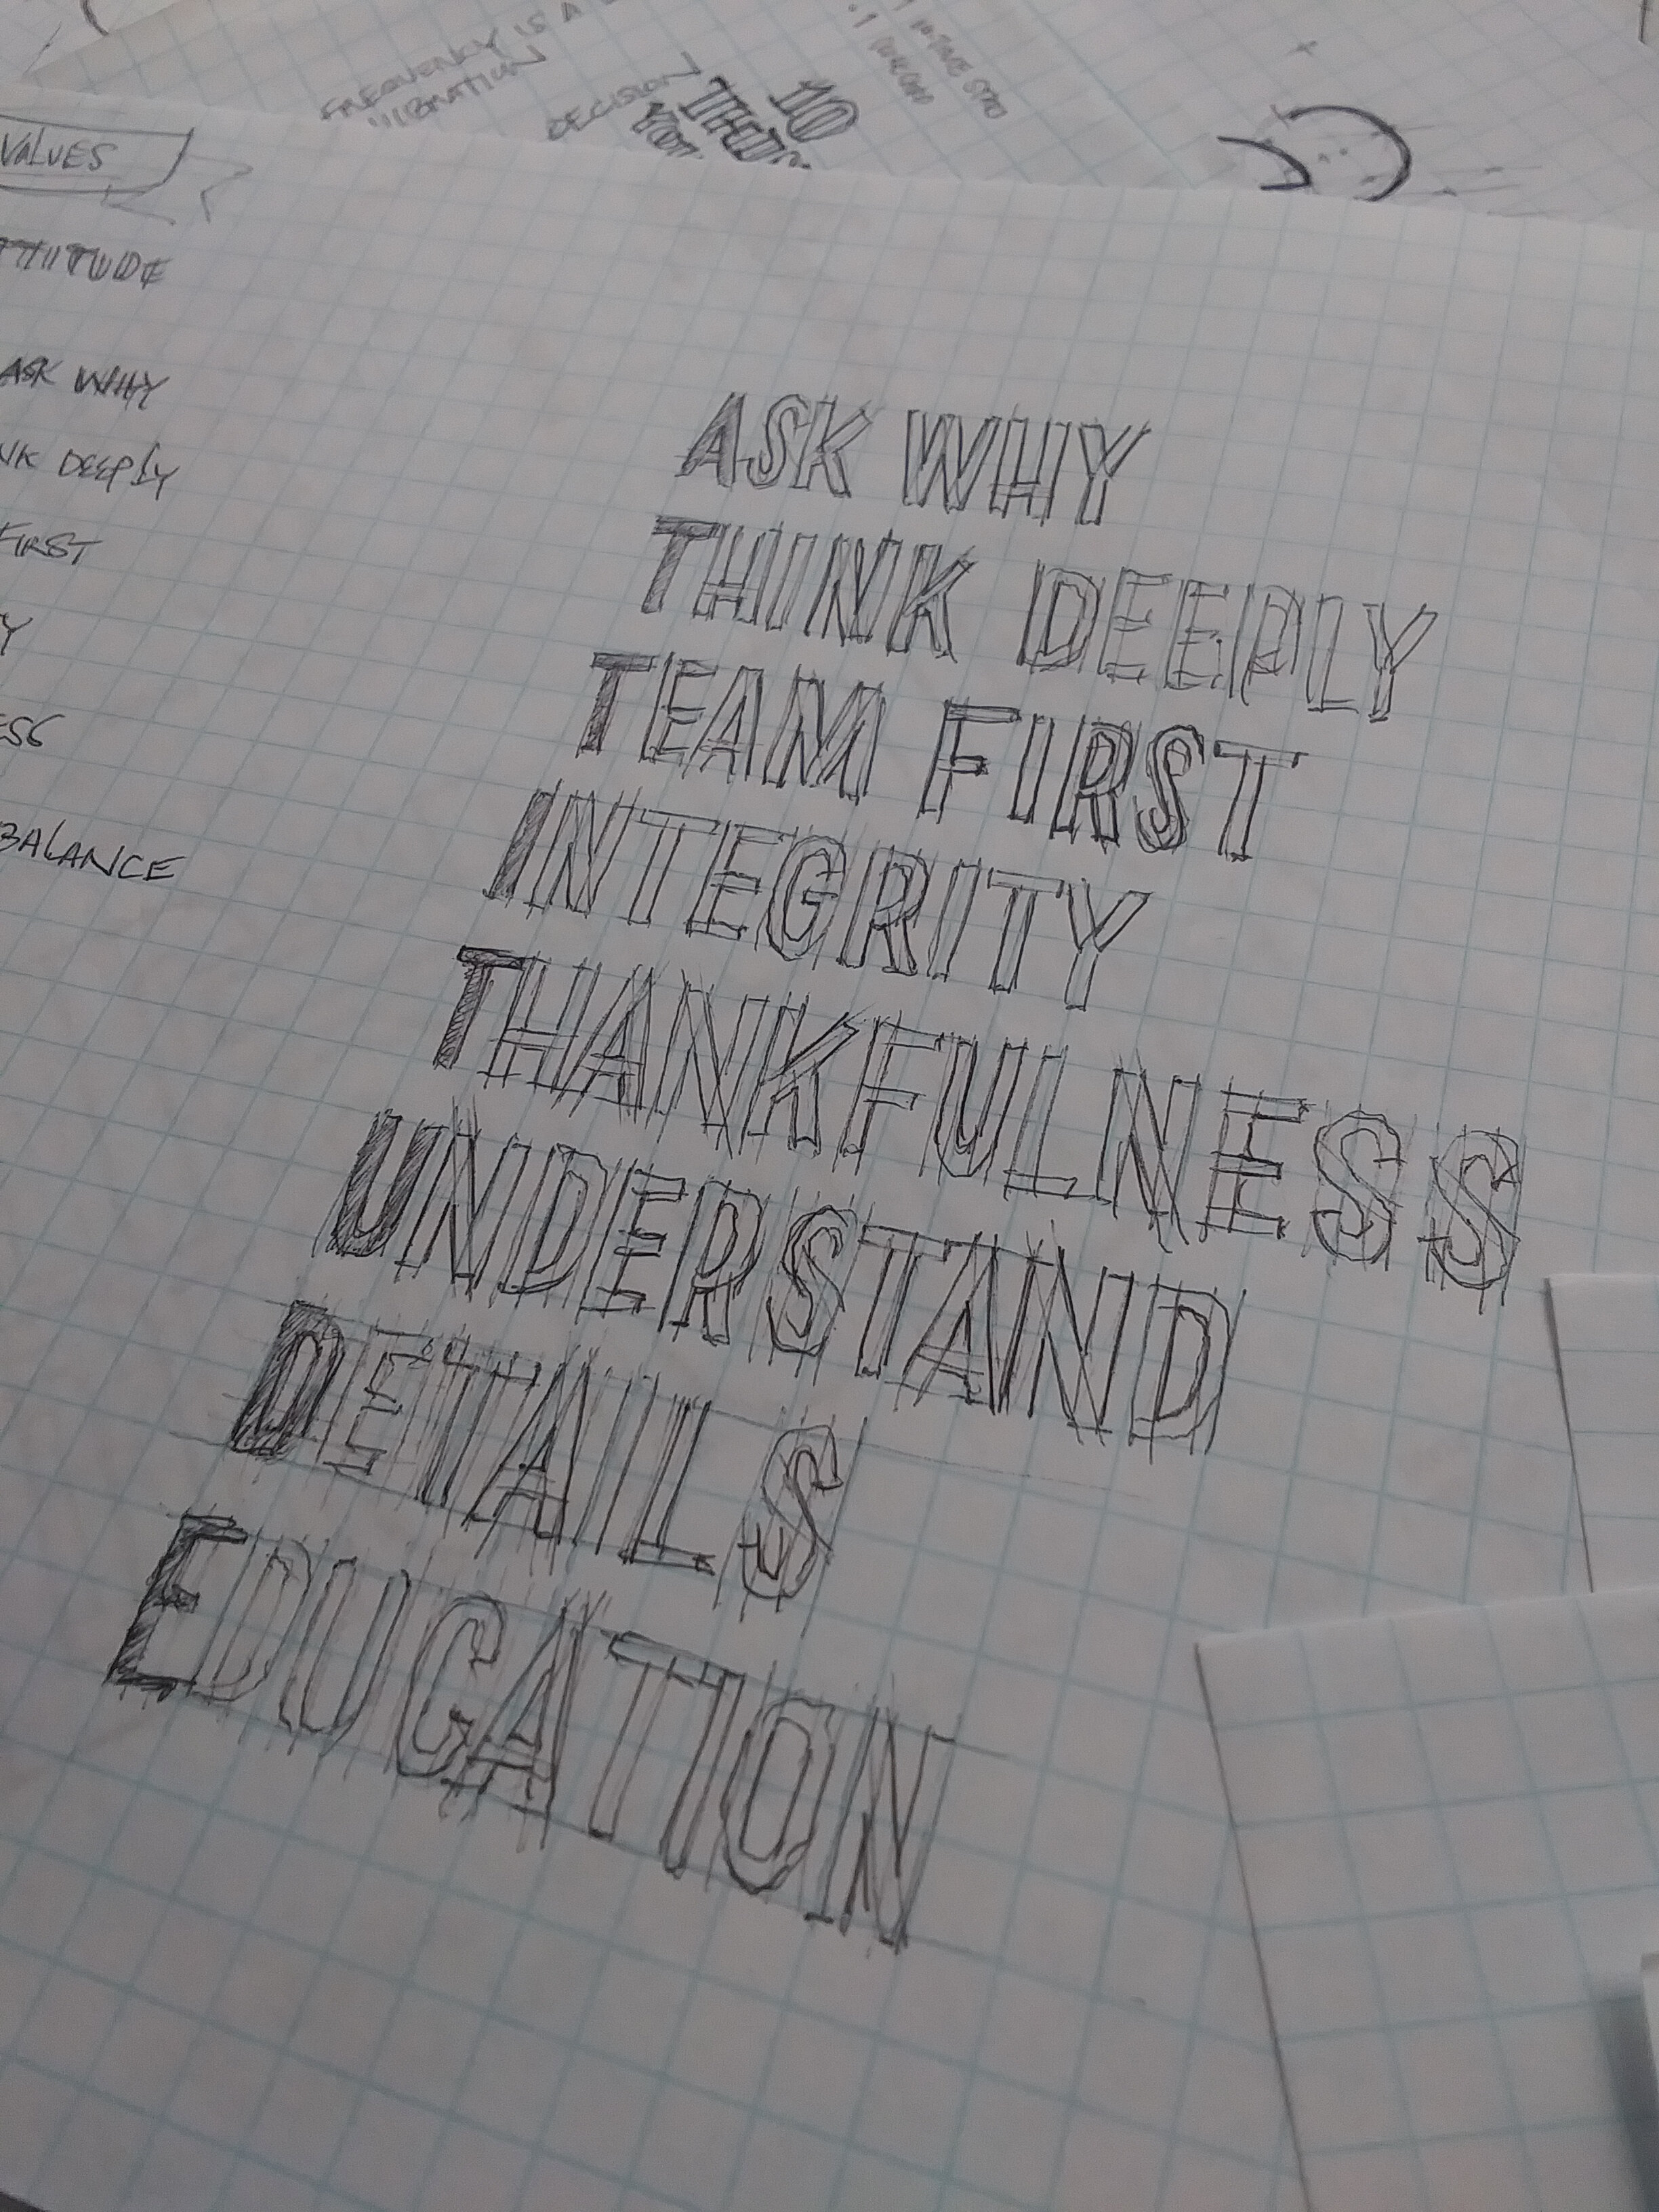 FREQUENCY IS A
VIBRATION
DECISION
10
VALUES
TTITUDE
ASK WHY
NK DEEPLY
FIRST
Y
ESS
BALANCE
ASK WHY
THINK DEEPLY
TEAM FIRST
INTEGRITY
THANKFULNESS
UNDERSTAND
DETAILS
EDUCATION